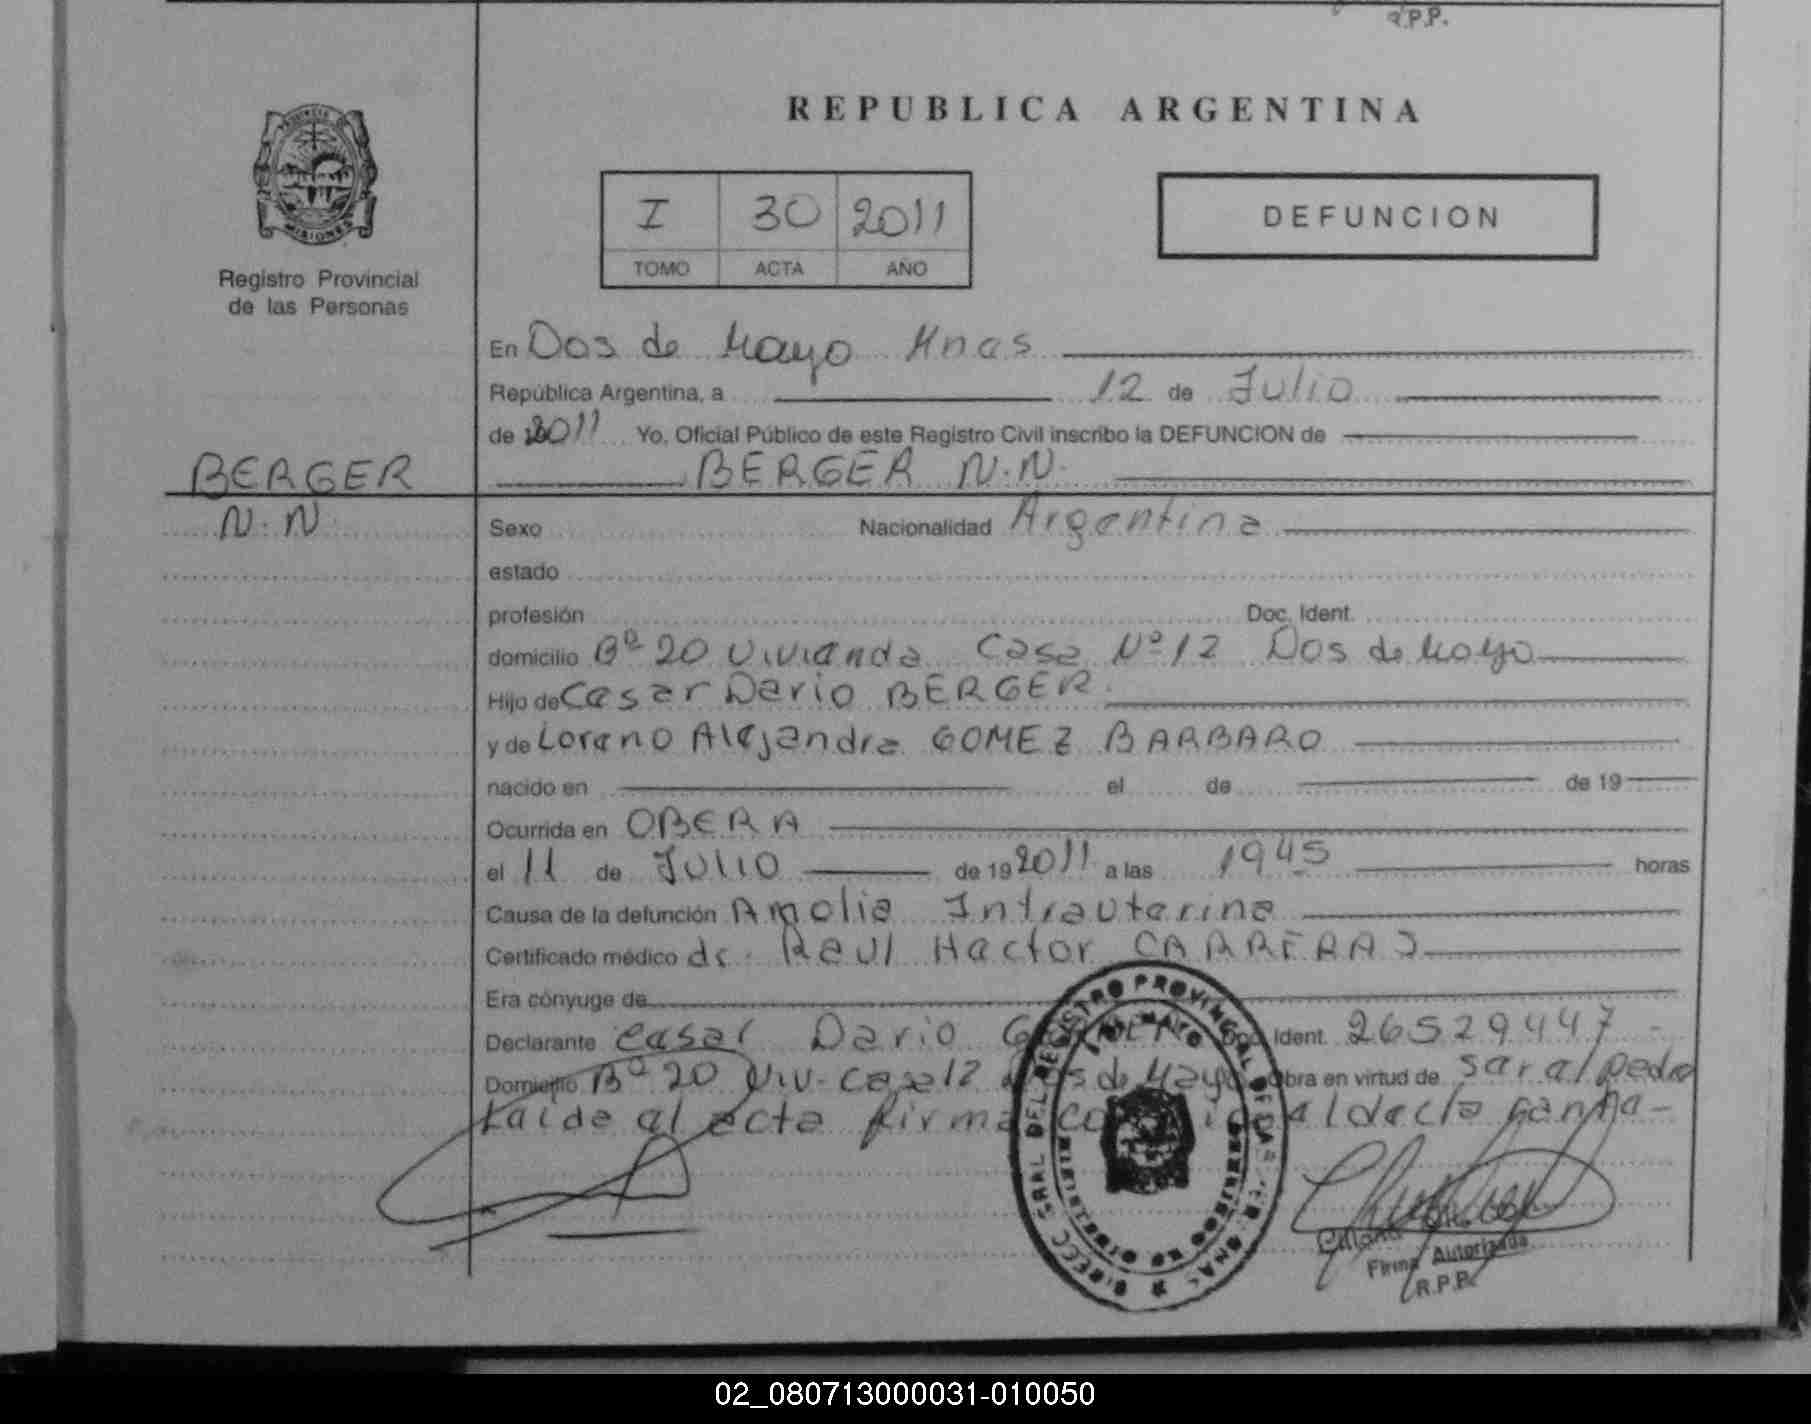 R.P.P.
REPUBLICA ARGENTINA
PROVINCIA DE
MISIONES
Registro Provincial
de las Personas
I 30 2011
TOMO ACTA AÑO
DEFUNCION
En Dos de Mayo Mnes
República Argentina, a 12 de Julio
de 2011 Yo, Oficial Público de este Registro Civil inscribo la DEFUNCION de
BERGER BERGER N.N.
N.N Sexo Nacionalidad Argentina
estado
profesión Doc. Ident.
domicilio Bº 20 Vivienda Casa Nº 12 Dos de Mayo
Hijo de Cesar Dario BERGER.
y de Lorena Alejandra GOMEZ BARBARO
nacido en el de de 19
Ocurrida en OBERA
el 11 de JULIO de 19 2011 a las 1945 horas
Causa de la defunción Amolia Intrauterina
Certificado médico dr. Raul Hector CARRERAS
Era cónyuge de
Declarante Cesar Dario Doc. Ident. 26529447
Domicilio Bº 20 Viv- Casa 12 Dos de Mayo Obra en virtud de ser al pedro
Leida al acta firma
Firma Autorizada
R.P.P.
02_080713000031-010050